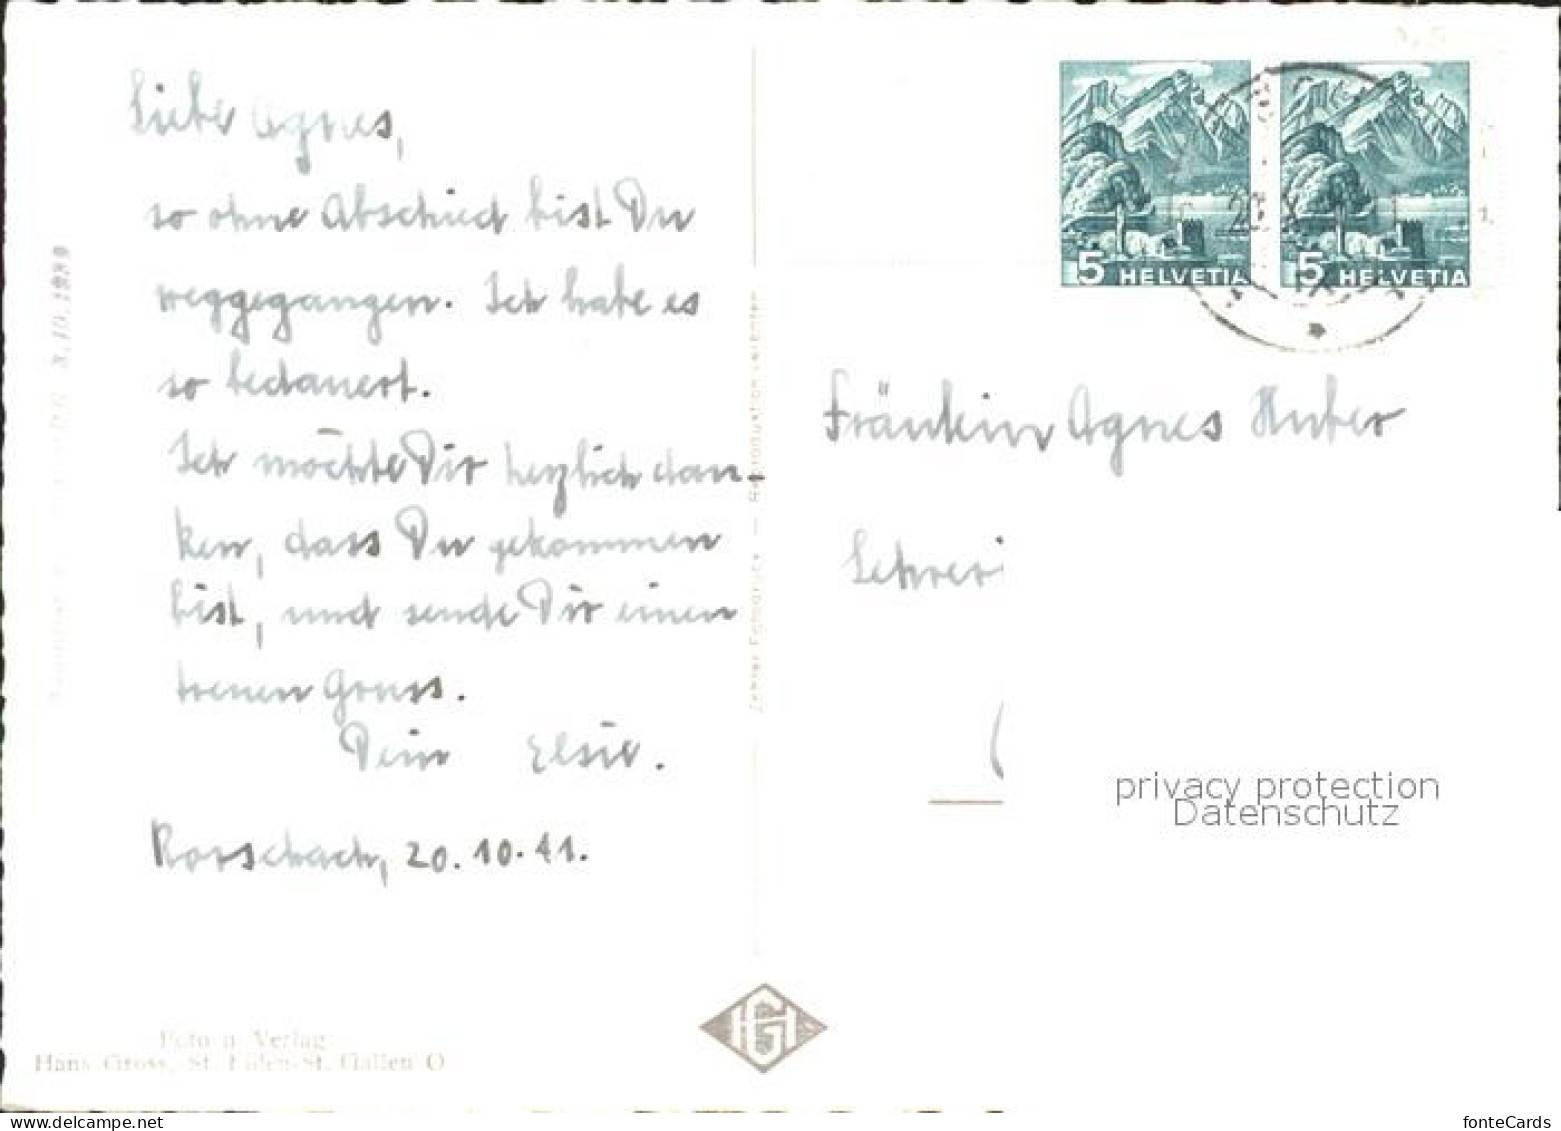 Liebe Agnes,
so ohne Abschied bist Du
weggegangen. Ich habe es
so bedauert.
Ich möchte Dir herzlich dan-
ken, dass Du gekommen
bist, und sende Dir einen
treuen Gruss.
Dein Elsie.
Rorschach, 20.10.41.
X.10.1939
Foto u. Verlag:
Hans Gross, St. Fiden-St. Gallen O
Echter Fotodruck — Reproduktion verboten
HG
5 HELVETIA
5 HELVETIA
Fräulein Agnes Huber
privacy protection
Datenschutz
fonteCards